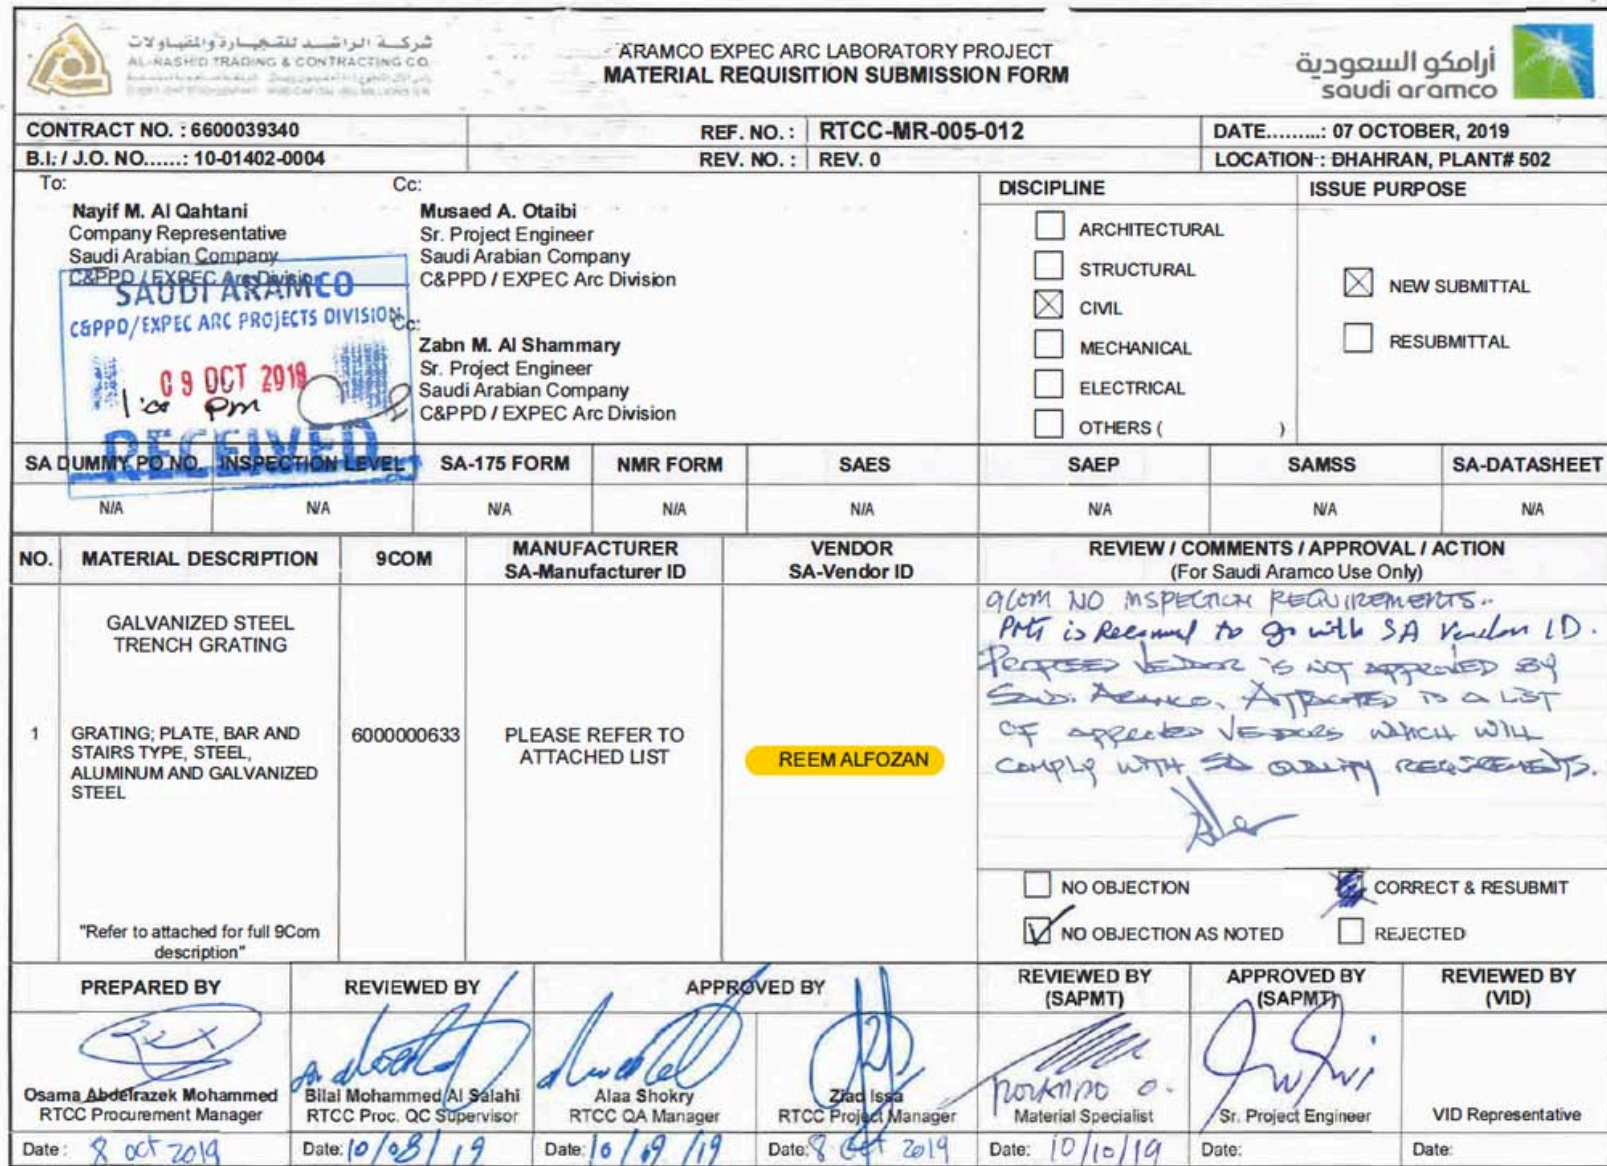 شركة الراشد للتجارة والمقاولات
AL-RASHID TRADING & CONTRACTING CO.
ARAMCO EXPEC ARC LABORATORY PROJECT
MATERIAL REQUISITION SUBMISSION FORM
أرامكو السعودية
saudi aramco
CONTRACT NO. : 6600039340
REF. NO. : RTCC-MR-005-012
DATE.........: 07 OCTOBER, 2019
B.I. / J.O. NO......: 10-01402-0004
REV. NO. : REV. 0
LOCATION : DHAHRAN, PLANT# 502
To:
Nayif M. Al Qahtani
Company Representative
Saudi Arabian Company
C&PPD / EXPEC Arc Division
Cc:
Musaed A. Otaibi
Sr. Project Engineer
Saudi Arabian Company
C&PPD / EXPEC Arc Division
Cc:
Zabn M. Al Shammary
Sr. Project Engineer
Saudi Arabian Company
C&PPD / EXPEC Arc Division
SAUDI ARAMCO
C&PPD/EXPEC ARC PROJECTS DIVISION
09 OCT 2019
1:00 pm
RECEIVED
DISCIPLINE
ARCHITECTURAL
STRUCTURAL
CIVIL
MECHANICAL
ELECTRICAL
OTHERS ( )
ISSUE PURPOSE
NEW SUBMITTAL
RESUBMITTAL
SA DUMMY PO NO. INSPECTION LEVEL SA-175 FORM NMR FORM SAES SAEP SAMSS SA-DATASHEET
N/A N/A N/A N/A N/A N/A N/A N/A
NO. MATERIAL DESCRIPTION 9COM
MANUFACTURER
SA-Manufacturer ID
VENDOR
SA-Vendor ID
REVIEW / COMMENTS / APPROVAL / ACTION
(For Saudi Aramco Use Only)
1
GALVANIZED STEEL
TRENCH GRATING
GRATING; PLATE, BAR AND
STAIRS TYPE, STEEL,
ALUMINUM AND GALVANIZED
STEEL
"Refer to attached for full 9Com
description"
6000000633
PLEASE REFER TO
ATTACHED LIST
REEM ALFOZAN
9COM NO INSPECTION REQUIREMENTS.
is to go with SA Vendor ID.
PROPOSED VENDOR IS NOT APPROVED BY
SAUDI ARAMCO. ATTACHED IS A LIST
OF APPROVED VENDORS WHICH WILL
COMPLY WITH SA QUALITY REQUIREMENTS.
NO OBJECTION
CORRECT & RESUBMIT
NO OBJECTION AS NOTED
REJECTED
PREPARED BY
Osama Abdelrazek Mohammed
RTCC Procurement Manager
Date: 8 oct 2019
REVIEWED BY
Bilal Mohammed Al Salahi
RTCC Proc. QC Supervisor
Date: 10/08/19
APPROVED BY
Alaa Shokry
RTCC QA Manager
Date: 10/09/19
Ziad Issa
RTCC Project Manager
Date: 8 Oct 2019
REVIEWED BY
(SAPMT)
Material Specialist
Date: 10/10/19
APPROVED BY
(SAPMT)
Sr. Project Engineer
Date:
REVIEWED BY
(VID)
VID Representative
Date: